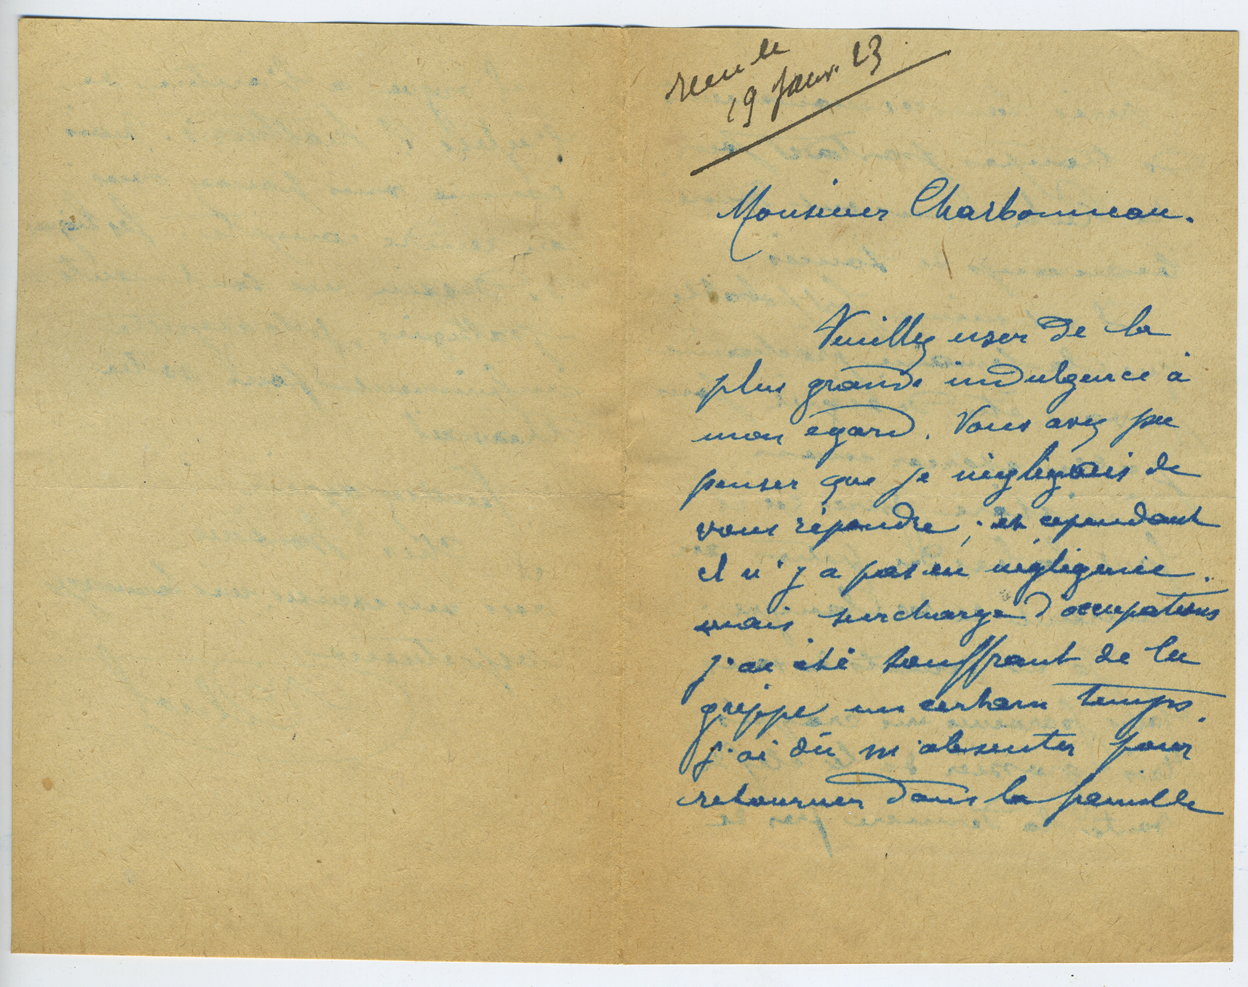 recu le
19 Janv. 23
Monsieur Charbonneau.
Veuillez user de la
plus grande indulgence à
mon égard. Vous avez pu
penser que je négligeais de
vous répondre ; et cependant
il n'y a pas eu négligence.
mais surchargé d'occupations
j'ai été souffrant de la
grippe un certain temps.
j'ai dû m'absenter pour
retourner dans la famille